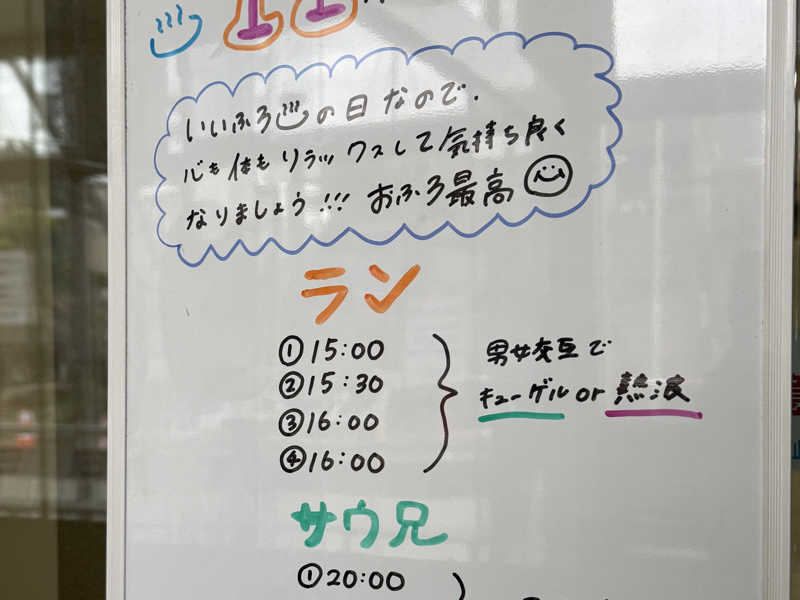 いいふろの日なので、
心も体もリラックスして気持ち良く
なりましょう!!! おふろ最高
ラン
①15:00
②15:30
③16:00
④16:00
男女交互で
キューゲル or 熱波
サウ兄
①20:00